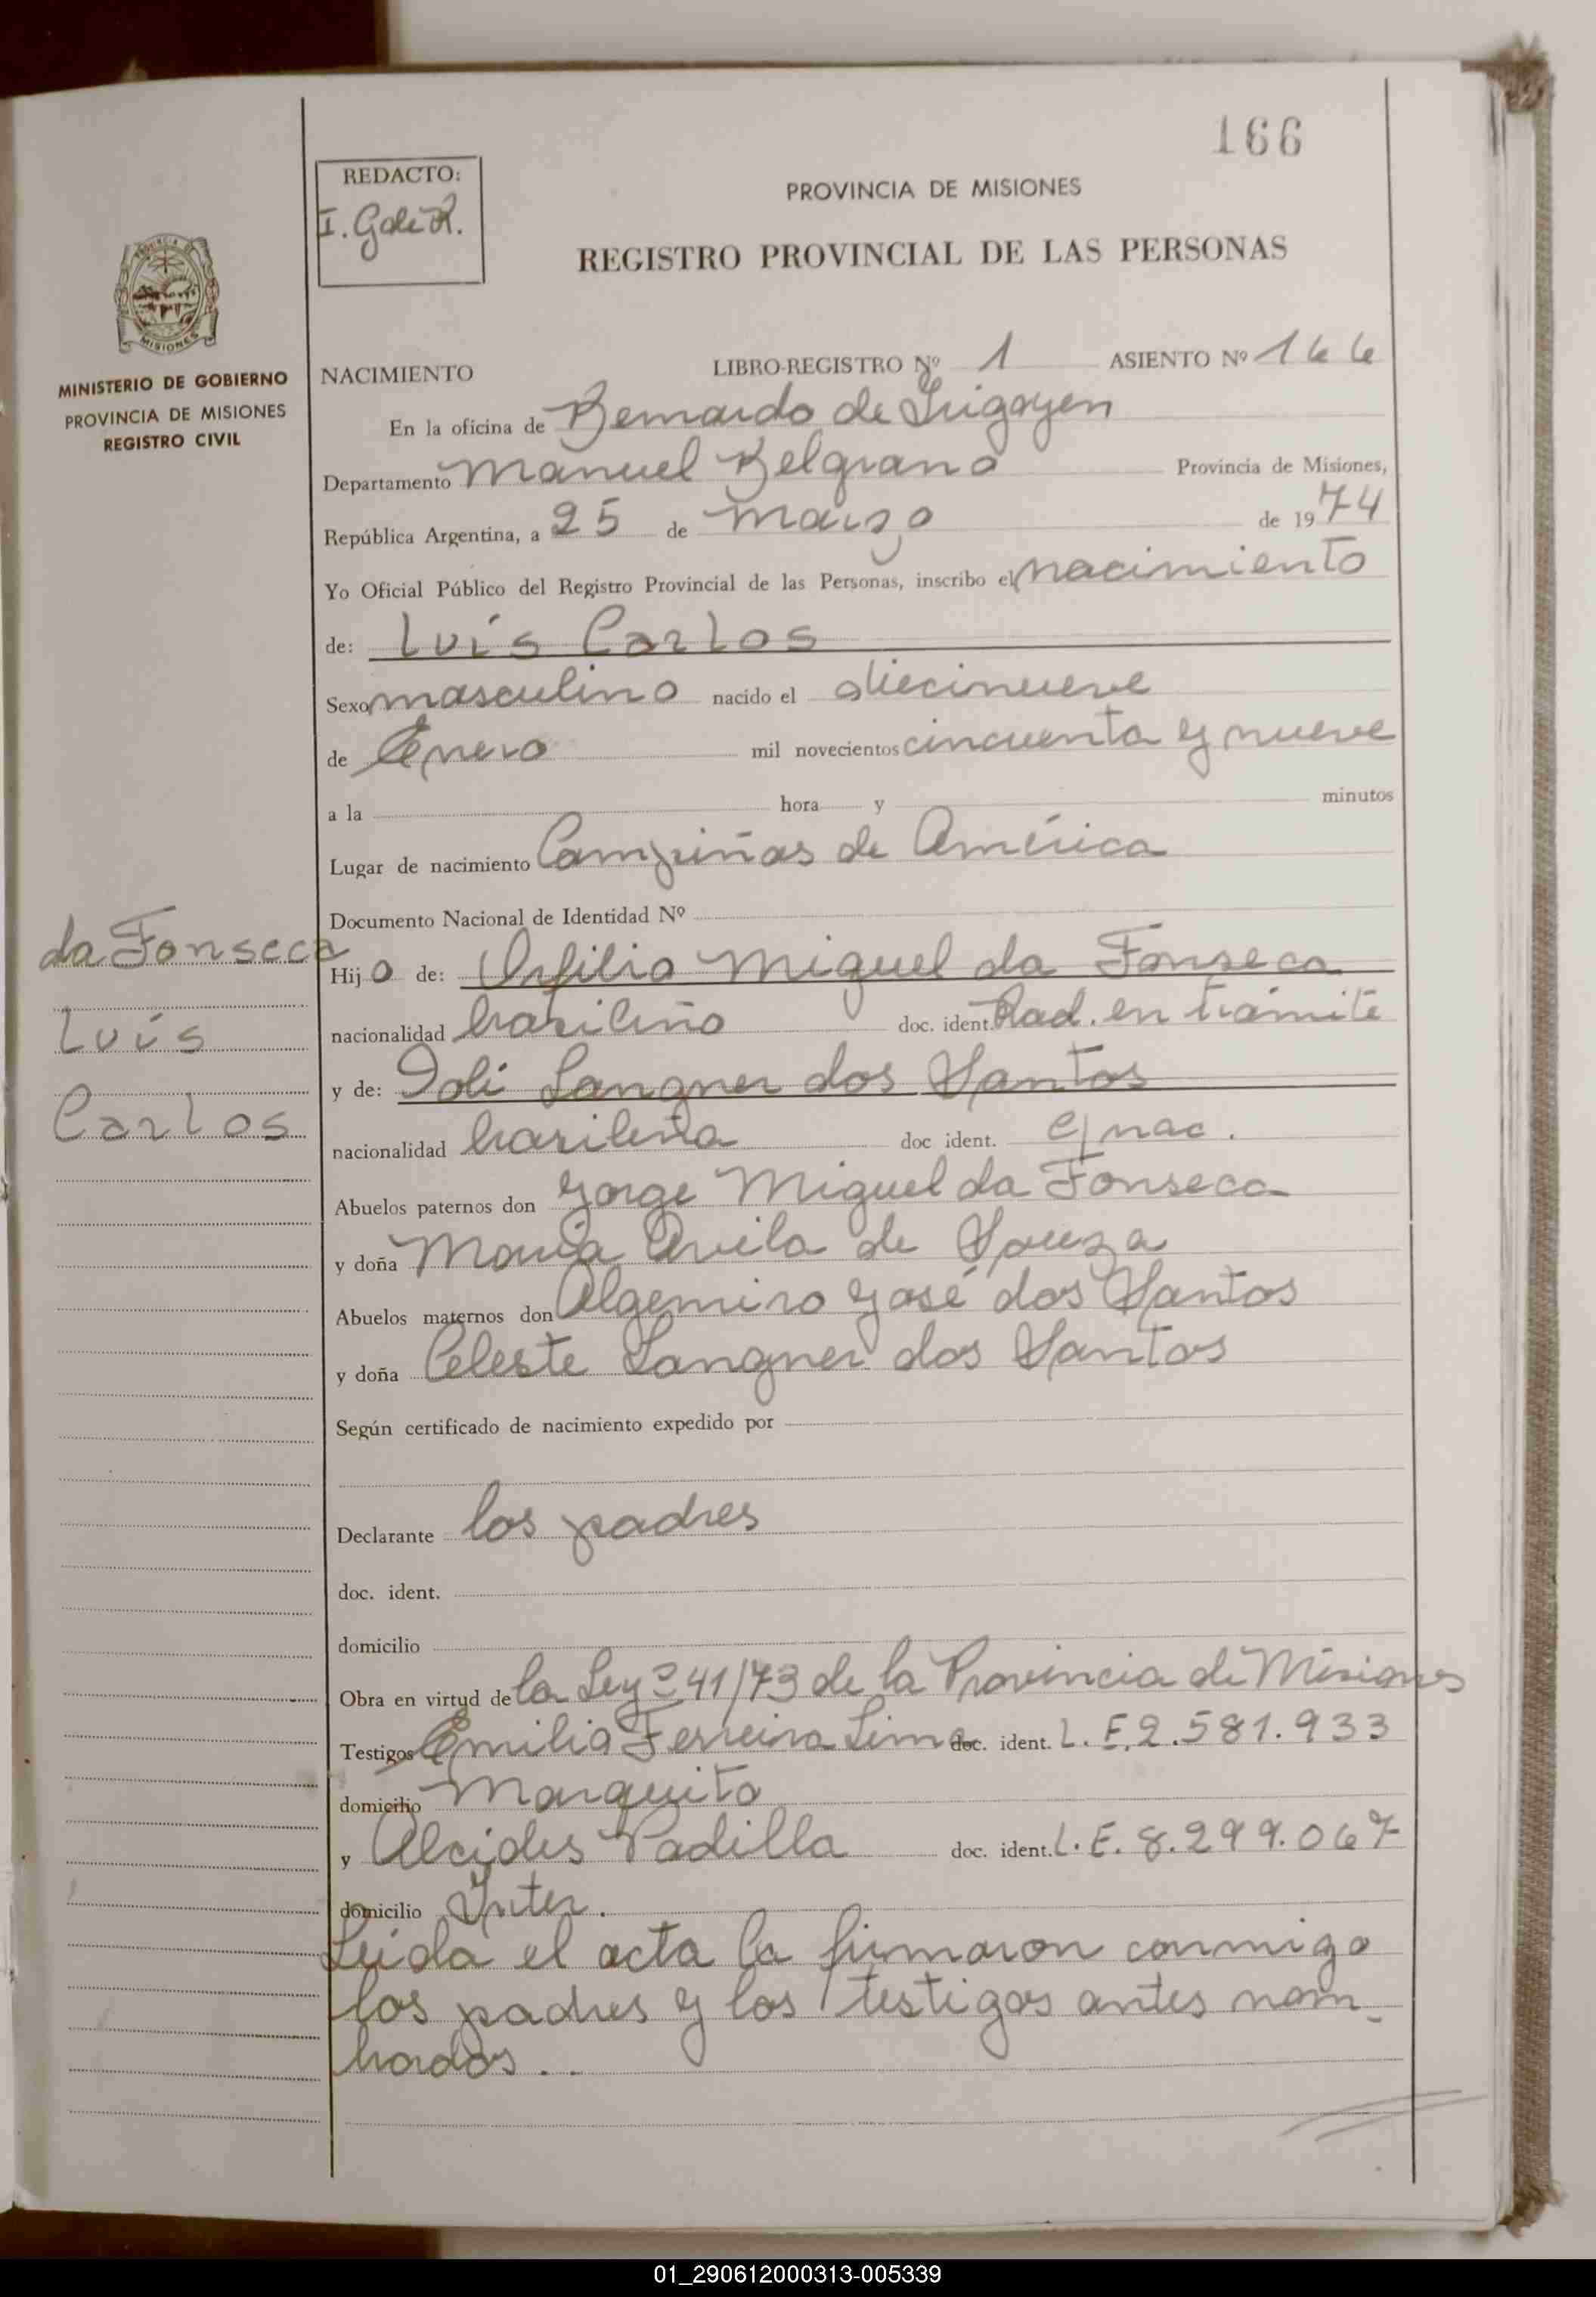 166
REDACTO:
PROVINCIA DE MISIONES
REGISTRO PROVINCIAL DE LAS PERSONAS
MISIONES
MINISTERIO DE GOBIERNO
PROVINCIA DE MISIONES
REGISTRO CIVIL
NACIMIENTO LIBRO-REGISTRO Nº 1 ASIENTO Nº 166
En la oficina de Bernardo de Irigoyen
Departamento Manuel Belgrano Provincia de Misiones,
República Argentina, a 25 de marzo de 1974
Yo Oficial Público del Registro Provincial de las Personas, inscribo el nacimiento
de: Luis Carlos
Sexo masculino nacido el diecinueve
de Enero mil novecientos cincuenta y nueve
a la hora y minutos
Lugar de nacimiento Campiñas de América
Documento Nacional de Identidad Nº
da Fonseca
Luis
Carlos
Hijo de: Orfilio Miguel da Fonseca
nacionalidad brasileño doc. ident. Rad. en trámite
y de: Idli Langner dos Santos
nacionalidad brasileña doc ident. c/nac.
Abuelos paternos don Jorge Miguel da Fonseca
y doña Maria Avila de Souza
Abuelos maternos don Algemiro José dos Santos
y doña Celeste Langner dos Santos
Según certificado de nacimiento expedido por
Declarante los padres
doc. ident.
domicilio
Obra en virtud de la Ley 241/73 de la Provincia de Misiones
Testigos Emilia Ferreira Lima doc. ident. L.E.2.581.933
domicilio Marquito
y Alcides Padilla doc. ident. L.E. 8.299.067
domicilio Inter.
Leida el acta la firmaron conmigo
los padres y los testigos antes nom-
brados..
01_290612000313-005339